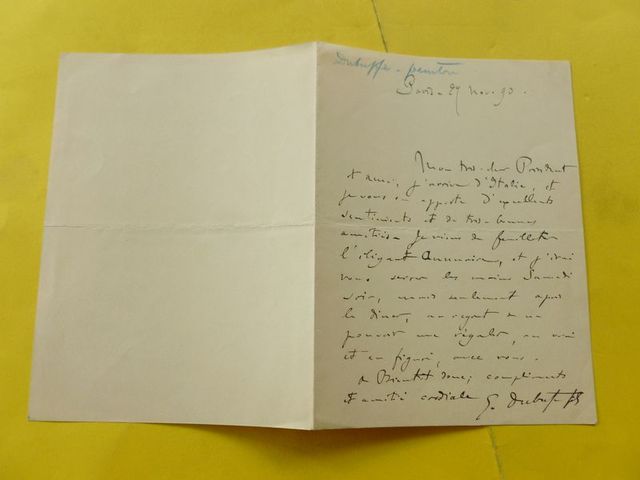 Dubuffe - peintre
Paris - 27 Nov. 90.
Mon très cher Président
et ami, j'arrive d'Italie, et
je vous en apporte d'excellents
sentiments et de très bonnes
amitiés. Je viens de feuilleter
l'élégant Annuaire, et j'irai
vous serrer les mains Samedi
soir, mais seulement après
le dîner, au regret de ne
pouvoir me régaler, au vrai
et au figuré, avec vous.
à Bientôt donc, compliments
et amitié cordiale G. Dubufe fils